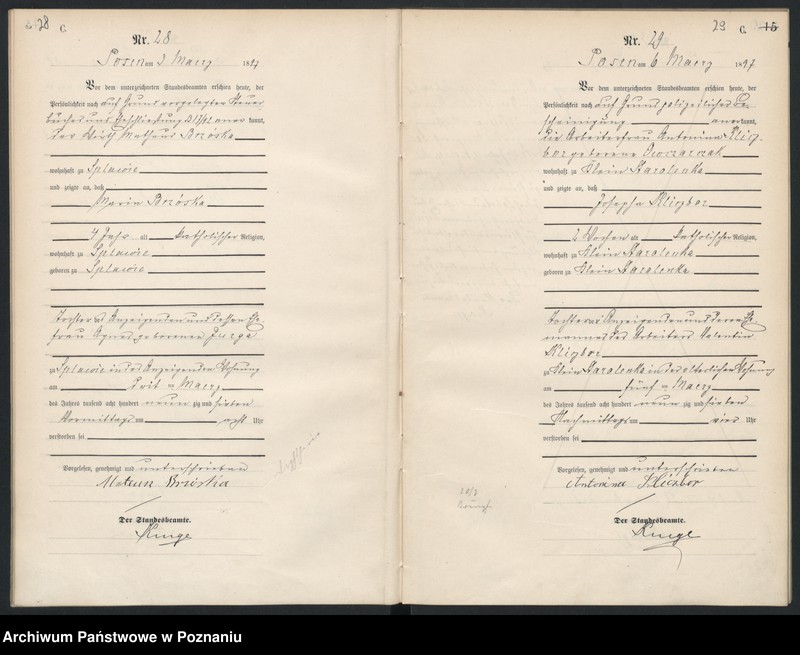 28 C.
Nr. 28
Posen am 3 Maerz 1897
Vor dem unterzeichneten Standesbeamten erschien heute, der
Persönlichkeit nach auf Grund vorgelegter Steuer
kannt,
der Wirth Matheus Brzóska
wohnhaft zu Splawie
und zeigte an, daß
Maria Brzóska
4 Jahr alt katholischer Religion,
wohnhaft zu Splawie
geboren zu Splawie
Tochter des Anzeigenden und dessen Ehe
frau Agnes geborenen
zu Splawie in des Anzeigenden Wohnung
am Maerz
des Jahres tausend acht hundert neun zig und sieben
Vormittags um acht Uhr
verstorben sei
Vorgelesen, genehmigt und unterschrieben
Brzóska
Der Standesbeamte.
29 C. 15
Nr. 29
Posen am 6 Maerz 1897
Vor dem unterzeichneten Standesbeamten erschien heute, der
Persönlichkeit nach auf Grund polizeilicher Be
scheinigung anerkannt,
die Arbeiterfrau Antonina Klicz
bor geborene Owczarczak
wohnhaft zu Klein Staralenka
und zeigte an, daß
Josepha Kliczbor
2 Wochen alt katholischer Religion,
wohnhaft zu Klein Staralenka
geboren zu Klein Staralenka
Tochter der Anzeigenden und deren Ehe
mannes des Arbeiters Valentin
Kliczbor
zu Klein Staralenka in der elterlichen Wohnung
am fünf Maerz
des Jahres tausend acht hundert neun zig und sieben
Nachmittags um vier Uhr
verstorben sei
Vorgelesen, genehmigt und unterschrieben
Antonina Kliczbor
Der Standesbeamte.
Archiwum Państwowe w Poznaniu